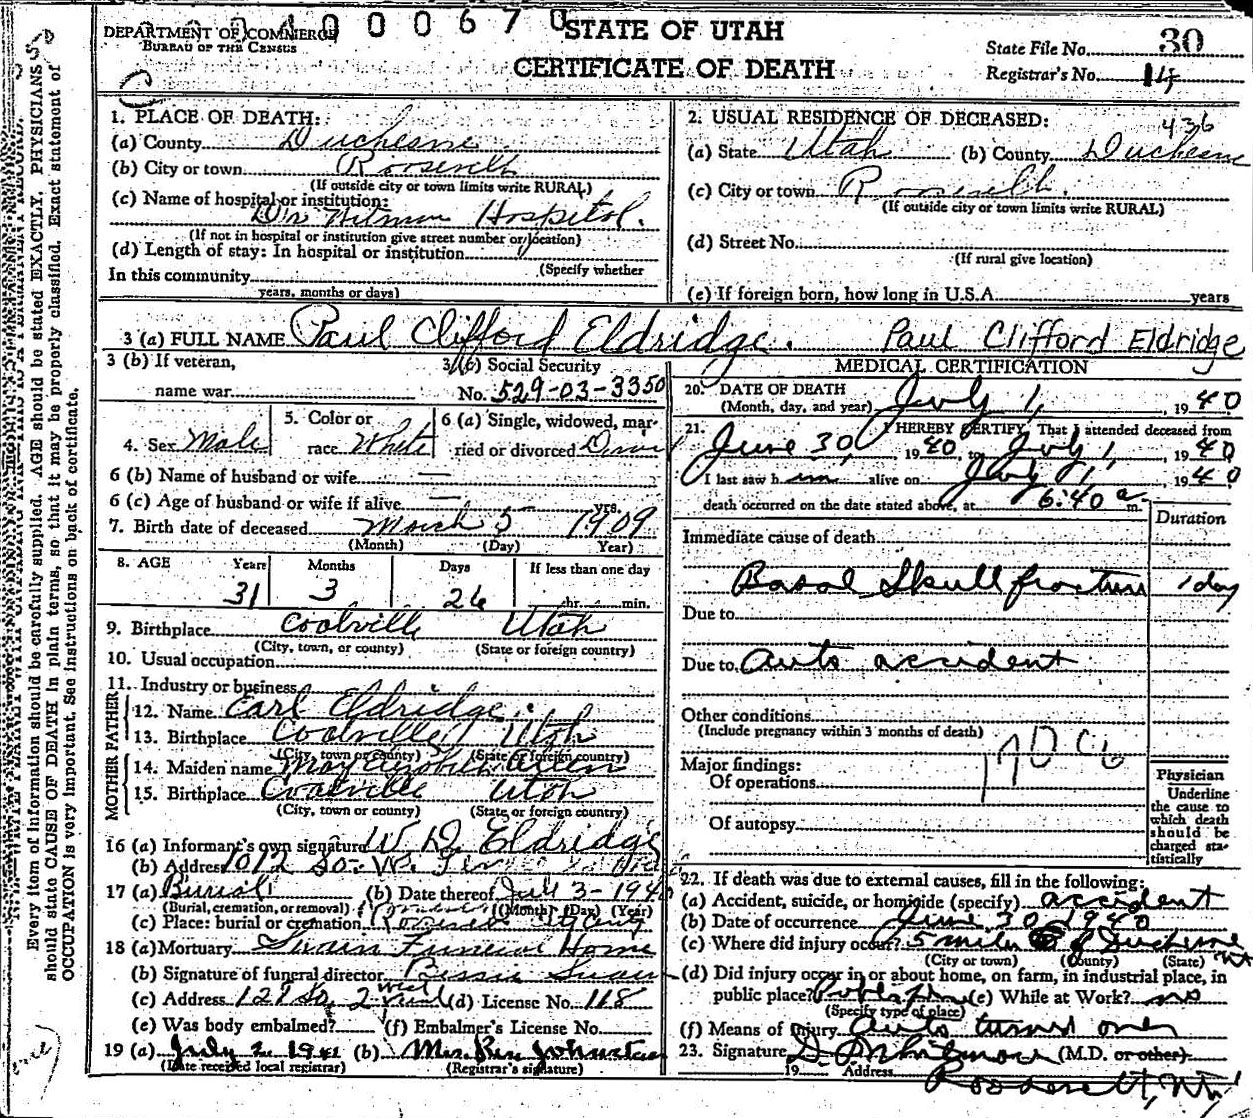 0004000670
DEPARTMENT OF COMMERCE
BUREAU OF THE CENSUS
STATE OF UTAH
CERTIFICATE OF DEATH
State File No. 30
Registrar's No. 14
1. PLACE OF DEATH:
(a) County Duchesne
(b) City or town Roosevelt
(If outside city or town limits write RURAL)
(c) Name of hospital or institution:
Hospital.
(If not in hospital or institution give street number or location)
(d) Length of stay: In hospital or institution
(Specify whether
In this community
years, months or days)
2. USUAL RESIDENCE OF DECEASED:
436
(a) State Utah (b) County Duchesne
(c) City or town Roosevelt.
(If outside city or town limits write RURAL)
(d) Street No.
(If rural give location)
(e) If foreign born, how long in U.S.A. years
3 (a) FULL NAME Paul Clifford Eldridge. Paul Clifford Eldridge
3 (b) If veteran,
name war
3 (c) Social Security
No. 529-03-3350
4. Sex Male
5. Color or
race White
6 (a) Single, widowed, mar-
ried or divorced
6 (b) Name of husband or wife —
6 (c) Age of husband or wife if alive — yrs.
7. Birth date of deceased March 5 1909
(Month) (Day) Year)
8. AGE Years Months Days If less than one day
31 3 26 hr. min.
9. Birthplace Coalville Utah
(City, town, or county) (State or foreign country)
10. Usual occupation
11. Industry or business
FATHER
12. Name Earl Eldridge.
13. Birthplace Coalville Utah
(City, town or county) (State or foreign country)
MOTHER
14. Maiden name May Elizabeth
15. Birthplace Coalville Utah
(City, town or county) (State or foreign country)
16 (a) Informant's own signature W D Eldridge
(b) Address 1012 So. W. Temple
17 (a) Burial (b) Date thereof July 3-1940
(Burial, cremation, or removal) (Month) (Day) (Year)
(c) Place: burial or cremation
18 (a) Mortuary Swain Funeral Home
(b) Signature of funeral director Bessie Swain
(c) Address 127 So. 2 West (d) License No. 118
(e) Was body embalmed? (f) Embalmer's License No.
19 (a) July 2, 1941 (b) Mrs. Johnston
(Date received local registrar) (Registrar's signature)
MEDICAL CERTIFICATION
20. DATE OF DEATH
(Month, day, and year) July 1, 1940
21. I HEREBY CERTIFY, That I attended deceased from
June 30, 1940, to July 1, 1940
I last saw him alive on July 1, 1940
death occurred on the date stated above, at 6:40 a m.
Duration
Immediate cause of death
Basal Skull fracture 1 day
Due to
Due to auto accident
Other conditions
(Include pregnancy within 3 months of death)
170
Major findings:
Of operations
Of autopsy
Physician
Underline
the cause to
which death
should be
charged sta-
tistically
22. If death was due to external causes, fill in the following:
(a) Accident, suicide, or homicide (specify) accident
(b) Date of occurrence June 30 1940
(c) Where did injury occur? 5 miles of Duchesne Ut
(City or town) (County) (State)
(d) Did injury occur in or about home, on farm, in industrial place, in
public place? (e) While at Work? no
(Specify type of place)
(f) Means of Injury Auto turned over
23. Signature (M.D. or other)
19 Address Roosevelt, Ut
Every item of information should be carefully supplied. AGE should be stated EXACTLY. PHYSICIANS
should state CAUSE OF DEATH in plain terms, so that it may be properly classified. Exact statement of
OCCUPATION is very important. See instructions on back of certificate.